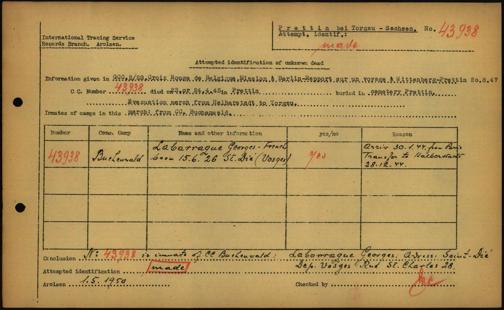 Prettin bei Torgau - Sachsen. No. 43938
Attempt. identif.: made
International Tracing Service
Records Branch, Arolsen.
Attempted identification of unknown dead
Information given in Croix Rouge de Belgique Mission à Berlin-Rapport sur un voyage à Wittenberg-Prettin
C.C. Number 43938 died on 24.4.45. Prettin buried in cemetery Prettin.
Evacuation march from Halberstadt to Torgau.
Inmates of camps in this march: from CC. Buchenwald.
Number Conc. Camp Name and other information yes/no Reason
43938 Buchenwald Labarraque Georges - French yes Arriv 30.1.44. from Paris
born 15.6.26 St. Dié (Vosges) Transfer to Halberstadt
28.12.44.
Conclusion No: 43938 is inmate of CC Buchenwald: Labarraque Georges. Adress: Saint-Dié
Attempted identification made Dep. Vosges Rue St. Charles 28.
Arolsen 1.5.1950 Checked by